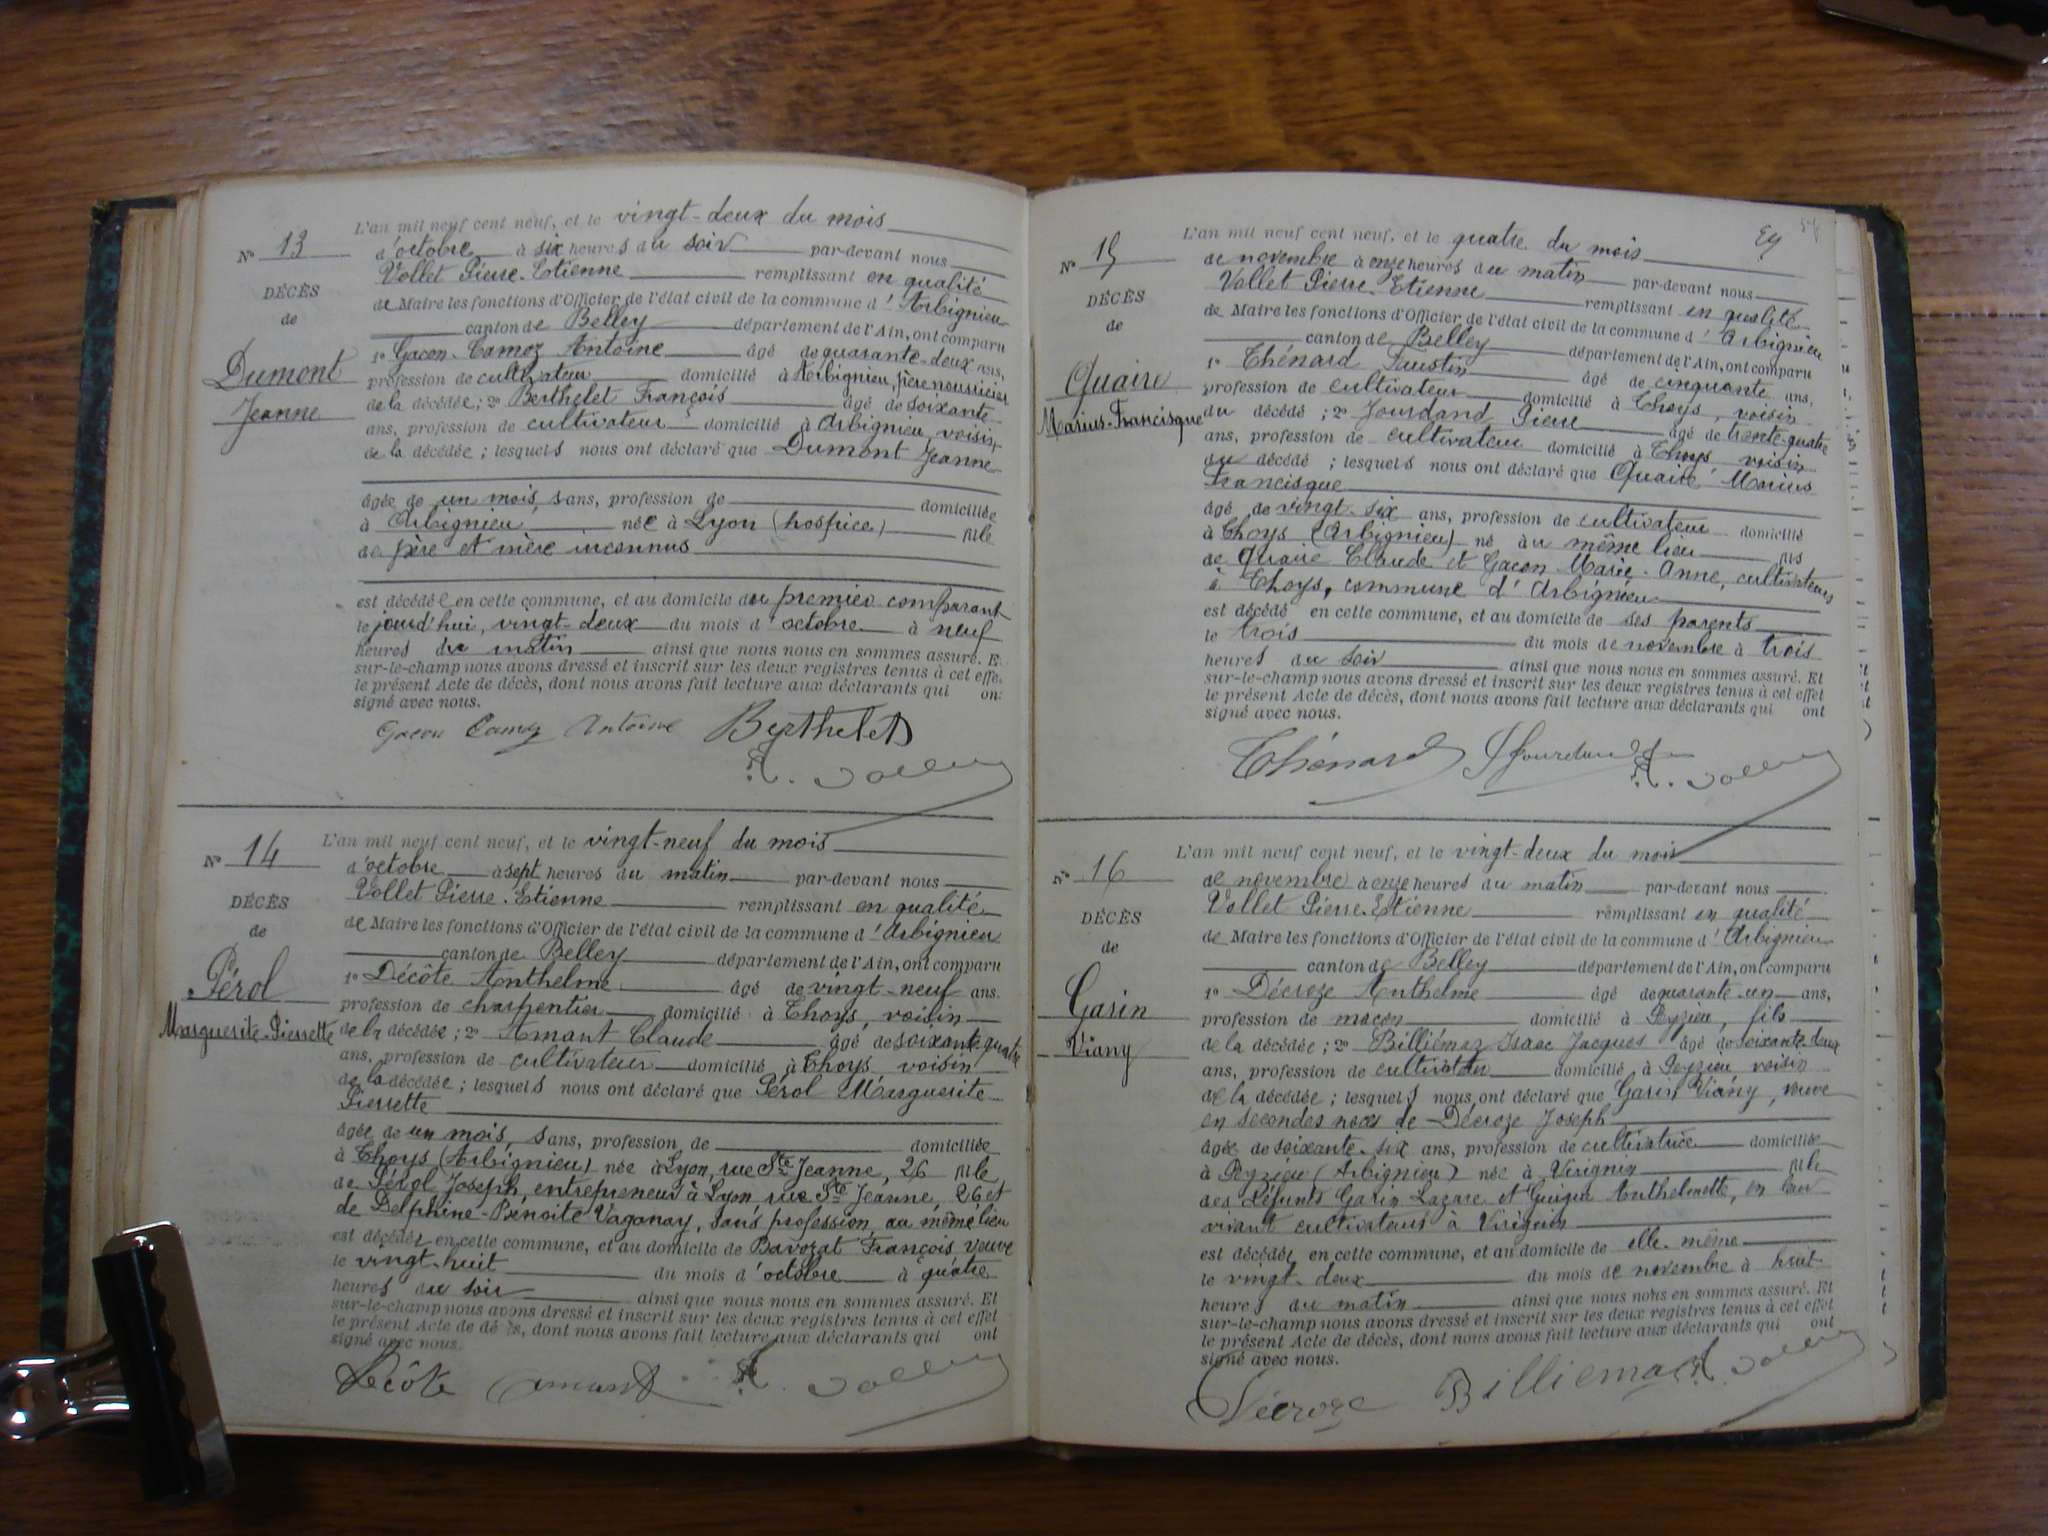 L'an mil neuf cent neuf, et le vingt-deux du mois
N° 13
d'octobre à six heures du soir par-devant nous
Vollet Pierre-Etienne remplissant en qualité
DÉCÈS
de Maire les fonctions d'Officier de l'état civil de la commune d'Arbignieu
de
canton de Belley département de l'Ain, ont comparu
1° Gacon-Camoz Antoine âgé de quarante-deux ans,
Dumont
profession de cultivateur domicilié à Arbignieu, père nourricier
Jeanne
de la décédée; 2° Berthelet François âgé de soixante
ans, profession de cultivateur domicilié à Arbignieu, voisin
de la décédée; lesquels nous ont déclaré que Dumont Jeanne
âgée de un mois, sans, profession de domiciliée
à Arbignieu, née à Lyon (hospice) fille
de père et mère inconnus
est décédée en cette commune, et au domicile du premier comparant
le jourd'hui, vingt-deux du mois d'octobre à neuf
heures du matin ainsi que nous nous en sommes assuré. E
sur-le-champ nous avons dressé et inscrit sur les deux registres tenus à cet effe
le présent Acte de décès, dont nous avons fait lecture aux déclarants qui on
signé avec nous.
Gacon Camoz Antoine Berthelet
L'an mil neuf cent neuf, et le vingt-neuf du mois
N° 14
d'octobre à sept heures du matin par-devant nous
Vollet Pierre-Etienne remplissant en qualité
DÉCÈS
de Maire les fonctions d'Officier de l'état civil de la commune d'Arbignieu
de
canton de Belley département de l'Ain, ont comparu
Pérol
1° Décôte Anthelme âgé de vingt-neuf ans
profession de charpentier domicilié à Thoys, voisin
Marguerite-Pierrette
de la décédée; 2° Amant Claude âgé de soixante-quatre
ans, profession de cultivateur domicilié à Thoys voisin
de la décédée; lesquels nous ont déclaré que Pérol Marguerite
Pierrette
âgée de un mois, sans, profession de domiciliée
à Thoys (Arbignieu) née à Lyon, rue Ste Jeanne, 26 fille
de Pérol Joseph, entrepreneur à Lyon rue Ste Jeanne, 26 et
de Delphine-Bénoite Vaganay, sans profession, au même lieu
est décédée en cette commune, et au domicile de Bavozat François veuve
le vingt-huit du mois d'octobre à quatre
heures du soir ainsi que nous nous en sommes assuré. Et
sur-le-champ nous avons dressé et inscrit sur les deux registres tenus à cet effet
le présent Acte de décès, dont nous avons fait lecture aux déclarants qui ont
signé avec nous.
Decôte Amant
L'an mil neuf cent neuf, et le quatre du mois
N° 15
de novembre à onze heures du matin par-devant nous
Vollet Pierre-Etienne remplissant en qualité
DÉCÈS
de Maire les fonctions d'Officier de l'état civil de la commune d'Arbignieu
de
canton de Belley département de l'Ain, ont comparu
1° Thénard Faustin âgé de cinquante ans,
Quaire
profession de cultivateur domicilié à Thoys, voisin
Marius-Francisque
du décédé; 2° Jourdand Pierre âgé de trente-quatre
ans, profession de cultivateur domicilié à Thoys voisin
du décédé; lesquels nous ont déclaré que Quaire Marius
Francisque
âgé de vingt-six ans, profession de cultivateur domicilié
à Thoys (Arbignieu) né au même lieu fils
de Quaire Claude et Gacon Marie-Anne, cultivateurs
à Thoys, commune d'Arbignieu
est décédé en cette commune, et au domicile de ses parents
le trois du mois de novembre à trois
heures du soir ainsi que nous nous en sommes assuré. Et
sur-le-champ nous avons dressé et inscrit sur les deux registres tenus à cet effet
le présent Acte de décès, dont nous avons fait lecture aux déclarants qui ont
signé avec nous.
Thénard
L'an mil neuf cent neuf, et le vingt-deux du mois
N° 16
de novembre à onze heures du matin par-devant nous
Vollet Pierre-Etienne remplissant en qualité
DÉCÈS
de Maire les fonctions d'Officier de l'état civil de la commune d'Arbignieu
de
canton de Belley département de l'Ain, ont comparu
Garin
1° Décroze Anthelme âgé de quarante-un ans,
profession de maçon domicilié à Peyzieu, fils
Viany
de la décédée; 2° Billiémaz Isaac Jacques âgé de soixante-deux
ans, profession de cultivateur domicilié à Peyzieu voisin
de la décédée; lesquels nous ont déclaré que Garin Viany, veuve
en secondes noces de Décroze Joseph
âgée de soixante-six ans, profession de cultivatrice domiciliée
à Peyzieu (Arbignieu) née à Virignin fille
des défunts Garin Lazare et Guigue Anthelmette, en leur
vivant cultivateurs à Virignin
est décédée en cette commune, et au domicile de elle-même
le vingt-deux du mois de novembre à huit
heures du matin ainsi que nous nous en sommes assuré. Et
sur-le-champ nous avons dressé et inscrit sur les deux registres tenus à cet effet
le présent Acte de décès, dont nous avons fait lecture aux déclarants qui ont
signé avec nous.
Décroze Billiemaz